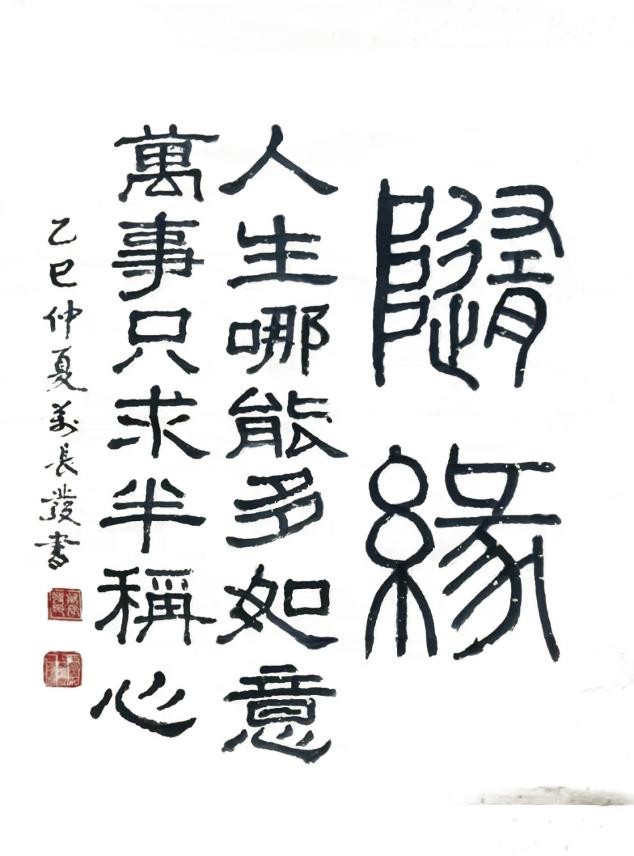 隨緣
人生哪能多如意
萬事只求半稱心
乙巳仲夏萬長發書